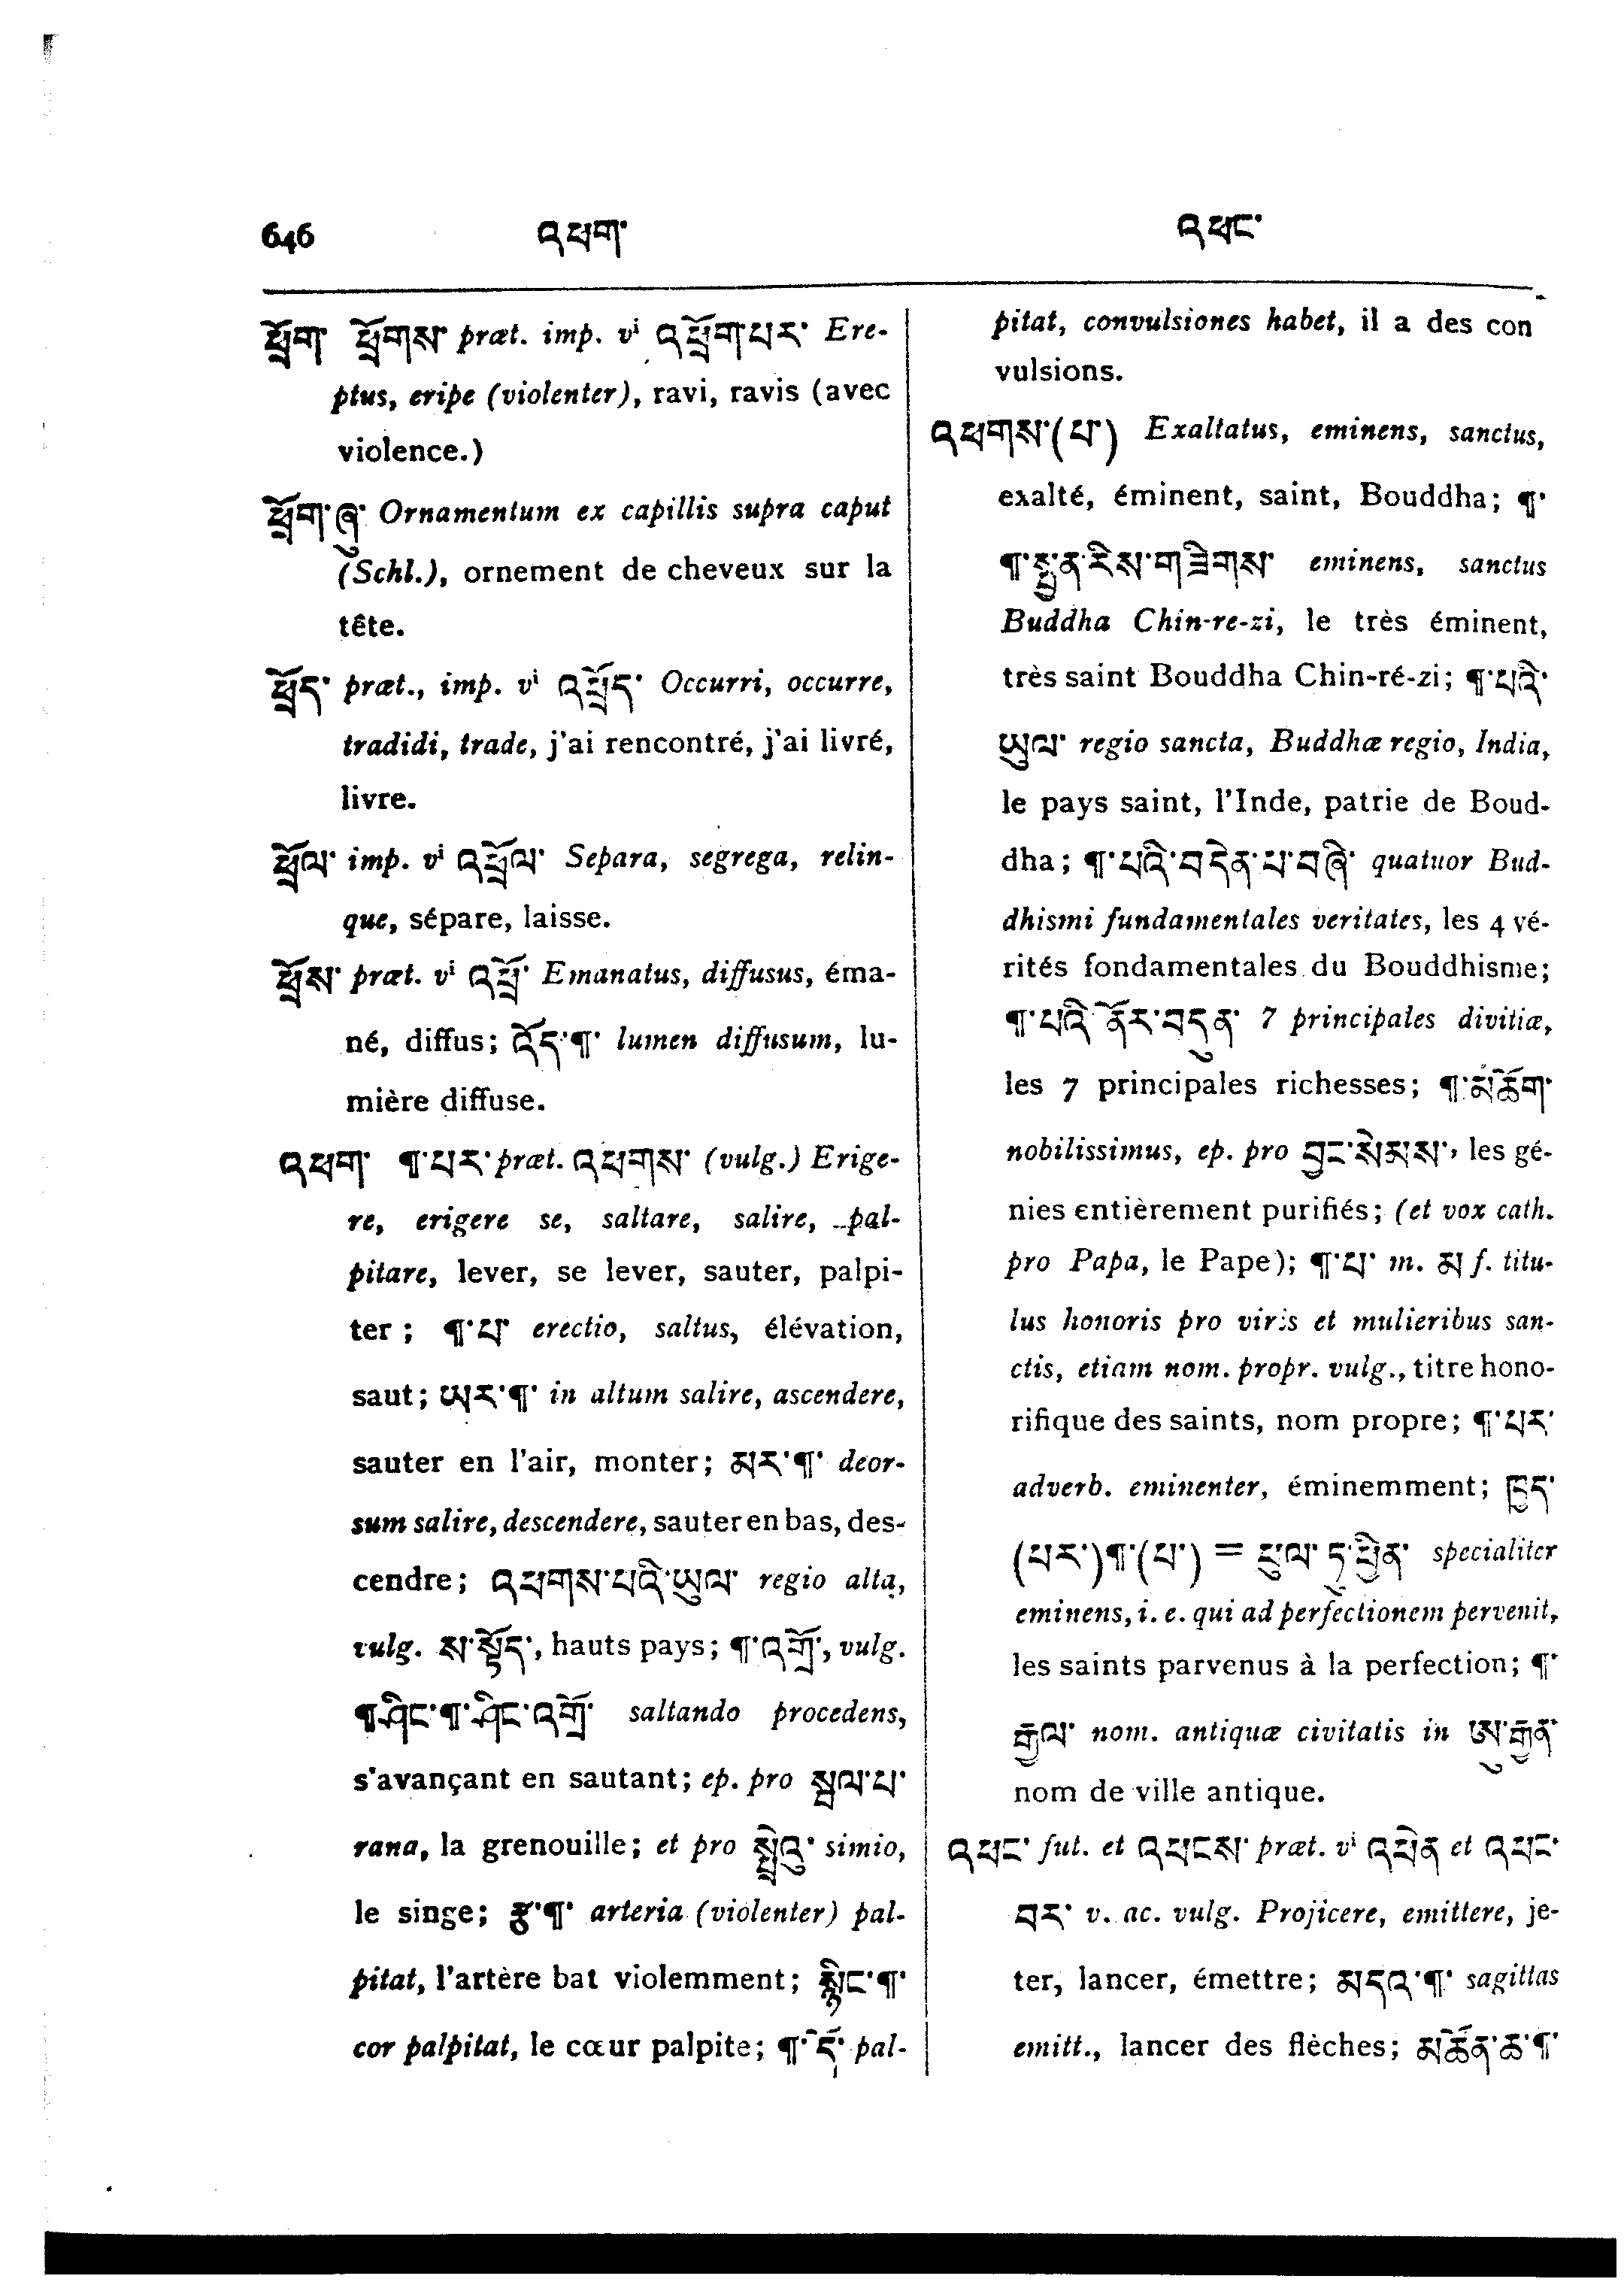 646
འཕག་
འཕང་
ཕྲོག་ ཕྲོགས་ præt. imp. vⁱ འཕྲོག་པར་ Ere-
ptus, eripe (violenter), ravi, ravis (avec
violence.)
ཕྲོག་ཞུ་ Ornamentum ex capillis supra caput
(Schl.), ornement de cheveux sur la
tête.
ཕྲོད་ præt., imp. vⁱ འཕྲོད་ Occurri, occurre,
tradidi, trade, j'ai rencontré, j'ai livré,
livre.
ཕྲོལ་ imp. vⁱ འཕྲོལ་ Separa, segrega, relin-
que, sépare, laisse.
ཕྲོས་ præt. vⁱ འཕྲོ་ Emanatus, diffusus, éma-
né, diffus; འོད་¶་ lumen diffusum, lu-
mière diffuse.
འཕག་ ¶་པར་ præt. འཕགས་ (vulg.) Erige-
re, erigere se, saltare, salire, pal-
pitare, lever, se lever, sauter, palpi-
ter; ¶་པ་ erectio, saltus, élévation,
saut; ཡར་¶་ in altum salire, ascendere,
sauter en l'air, monter; མར་¶་ deor-
sum salire, descendere, sauter en bas, des-
cendre; འཕགས་པའི་ཡུལ་ regio alta,
vulg. ས་སྟོད་, hauts pays; ¶་འགྲོ་, vulg.
¶་ཤིང་¶་ཤིང་འགྲོ་ saltando procedens,
s'avançant en sautant; ep. pro སྦལ་པ་
rana, la grenouille; et pro སྤྲེའུ་ simio,
le singe; རྩ་¶་ arteria (violenter) pal-
pitat, l'artère bat violemment; སྙིང་¶་
cor palpitat, le cœur palpite; ¶་དོ་ pal-
pitat, convulsiones habet, il a des con
vulsions.
འཕགས་(པ་) Exaltatus, eminens, sanctus,
exalté, éminent, saint, Bouddha; ¶་
¶་སྤྱན་རིས་གཟིགས་ eminens, sanctus
Buddha Chin-re-zi, le très éminent,
très saint Bouddha Chin-ré-zi; ¶་པའི་
ཡུལ་ regio sancta, Buddhæ regio, India,
le pays saint, l'Inde, patrie de Boud-
dha; ¶་པའི་བདེན་པ་བཞི་ quatuor Bud-
dhismi fundamentales veritates, les 4 vé-
rités fondamentales du Bouddhisme;
¶་པའི་ནོར་བདུན་ 7 principales divitiæ,
les 7 principales richesses; ¶་མ་ཆོག་
nobilissimus, ep. pro བྱང་སེམས་, les gé-
nies entièrement purifiés; (et vox cath.
pro Papa, le Pape); ¶་པ་ m. མ f. titu-
lus honoris pro viris et mulieribus san-
ctis, etiam nom. propr. vulg., titre hono-
rifique des saints, nom propre; ¶་པར་
adverb. eminenter, éminemment; ཁྱད་
(པར་)¶་(པ་) = ཕུལ་དུ་ཕྱིན་ specialiter
eminens, i. e. qui ad perfectionem pervenit,
les saints parvenus à la perfection; ¶་
རྒྱལ་ nom. antiquæ civitatis in ཨུ་རྒྱན་
nom de ville antique.
འཕང་ fut. et འཕངས་ præt. vⁱ འཕེན et འཕང་
བར་ v. ac. vulg. Projicere, emittere, je-
ter, lancer, émettre; མདའ་¶་ sagittas
emitt., lancer des flèches; མཚོན་ཆ་¶་